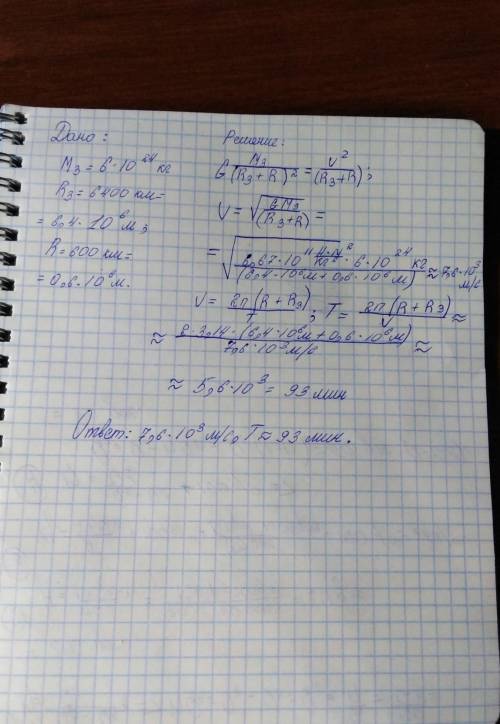 Дано:
M₃ = 6·10²⁴ кг
R₃ = 6400 км =
= 6,4·10⁶ м,
R = 600 км =
= 0,6·10⁶ м.
Решение:
G M₃/(R₃+R)² = v²/(R₃+R);
V = √(GM₃/(R₃+R)) =
= √(6,67·10¹¹ Н·м²/кг²·6·10²⁴ кг/(6,4·10⁶ м + 0,6·10⁶ м)) ≈ 7,6·10³ м/с
V = 2π(R+R₃)/T; T = 2π(R+R₃)/V ≈
≈ 2·3,14·(6,4·10⁶ м + 0,6·10⁶ м)/7,6·10³ м/с ≈
≈ 5,6·10³ = 93 мин
Ответ: 7,6·10³ м/с, T ≈ 93 мин.